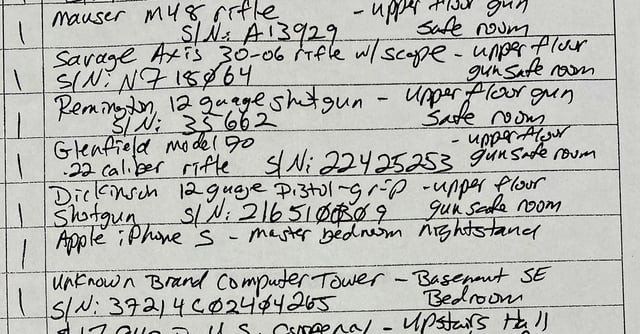 1 Mauser M48 rifle - upper floor gun
S/N: A13929 safe room
Savage Axis 30-06 rifle w/scope - upper floor
1 S/N: N718064 gun safe room
Remington 12 guage shotgun - upper floor gun
1 S/N: 35662 safe room
Glenfield model 70 - upper floor
1 .22 caliber rifle S/N: 22425253 gun safe room
Dickinson 12 guage pistol-grip - upper floor
1 Shotgun S/N: gun safe room
1 Apple iPhone S - master bedroom nightstand
Unknown Brand Computer Tower - Basement SE
1 S/N: 37214C02404265 Bedroom
U.S. - Upstairs Hall